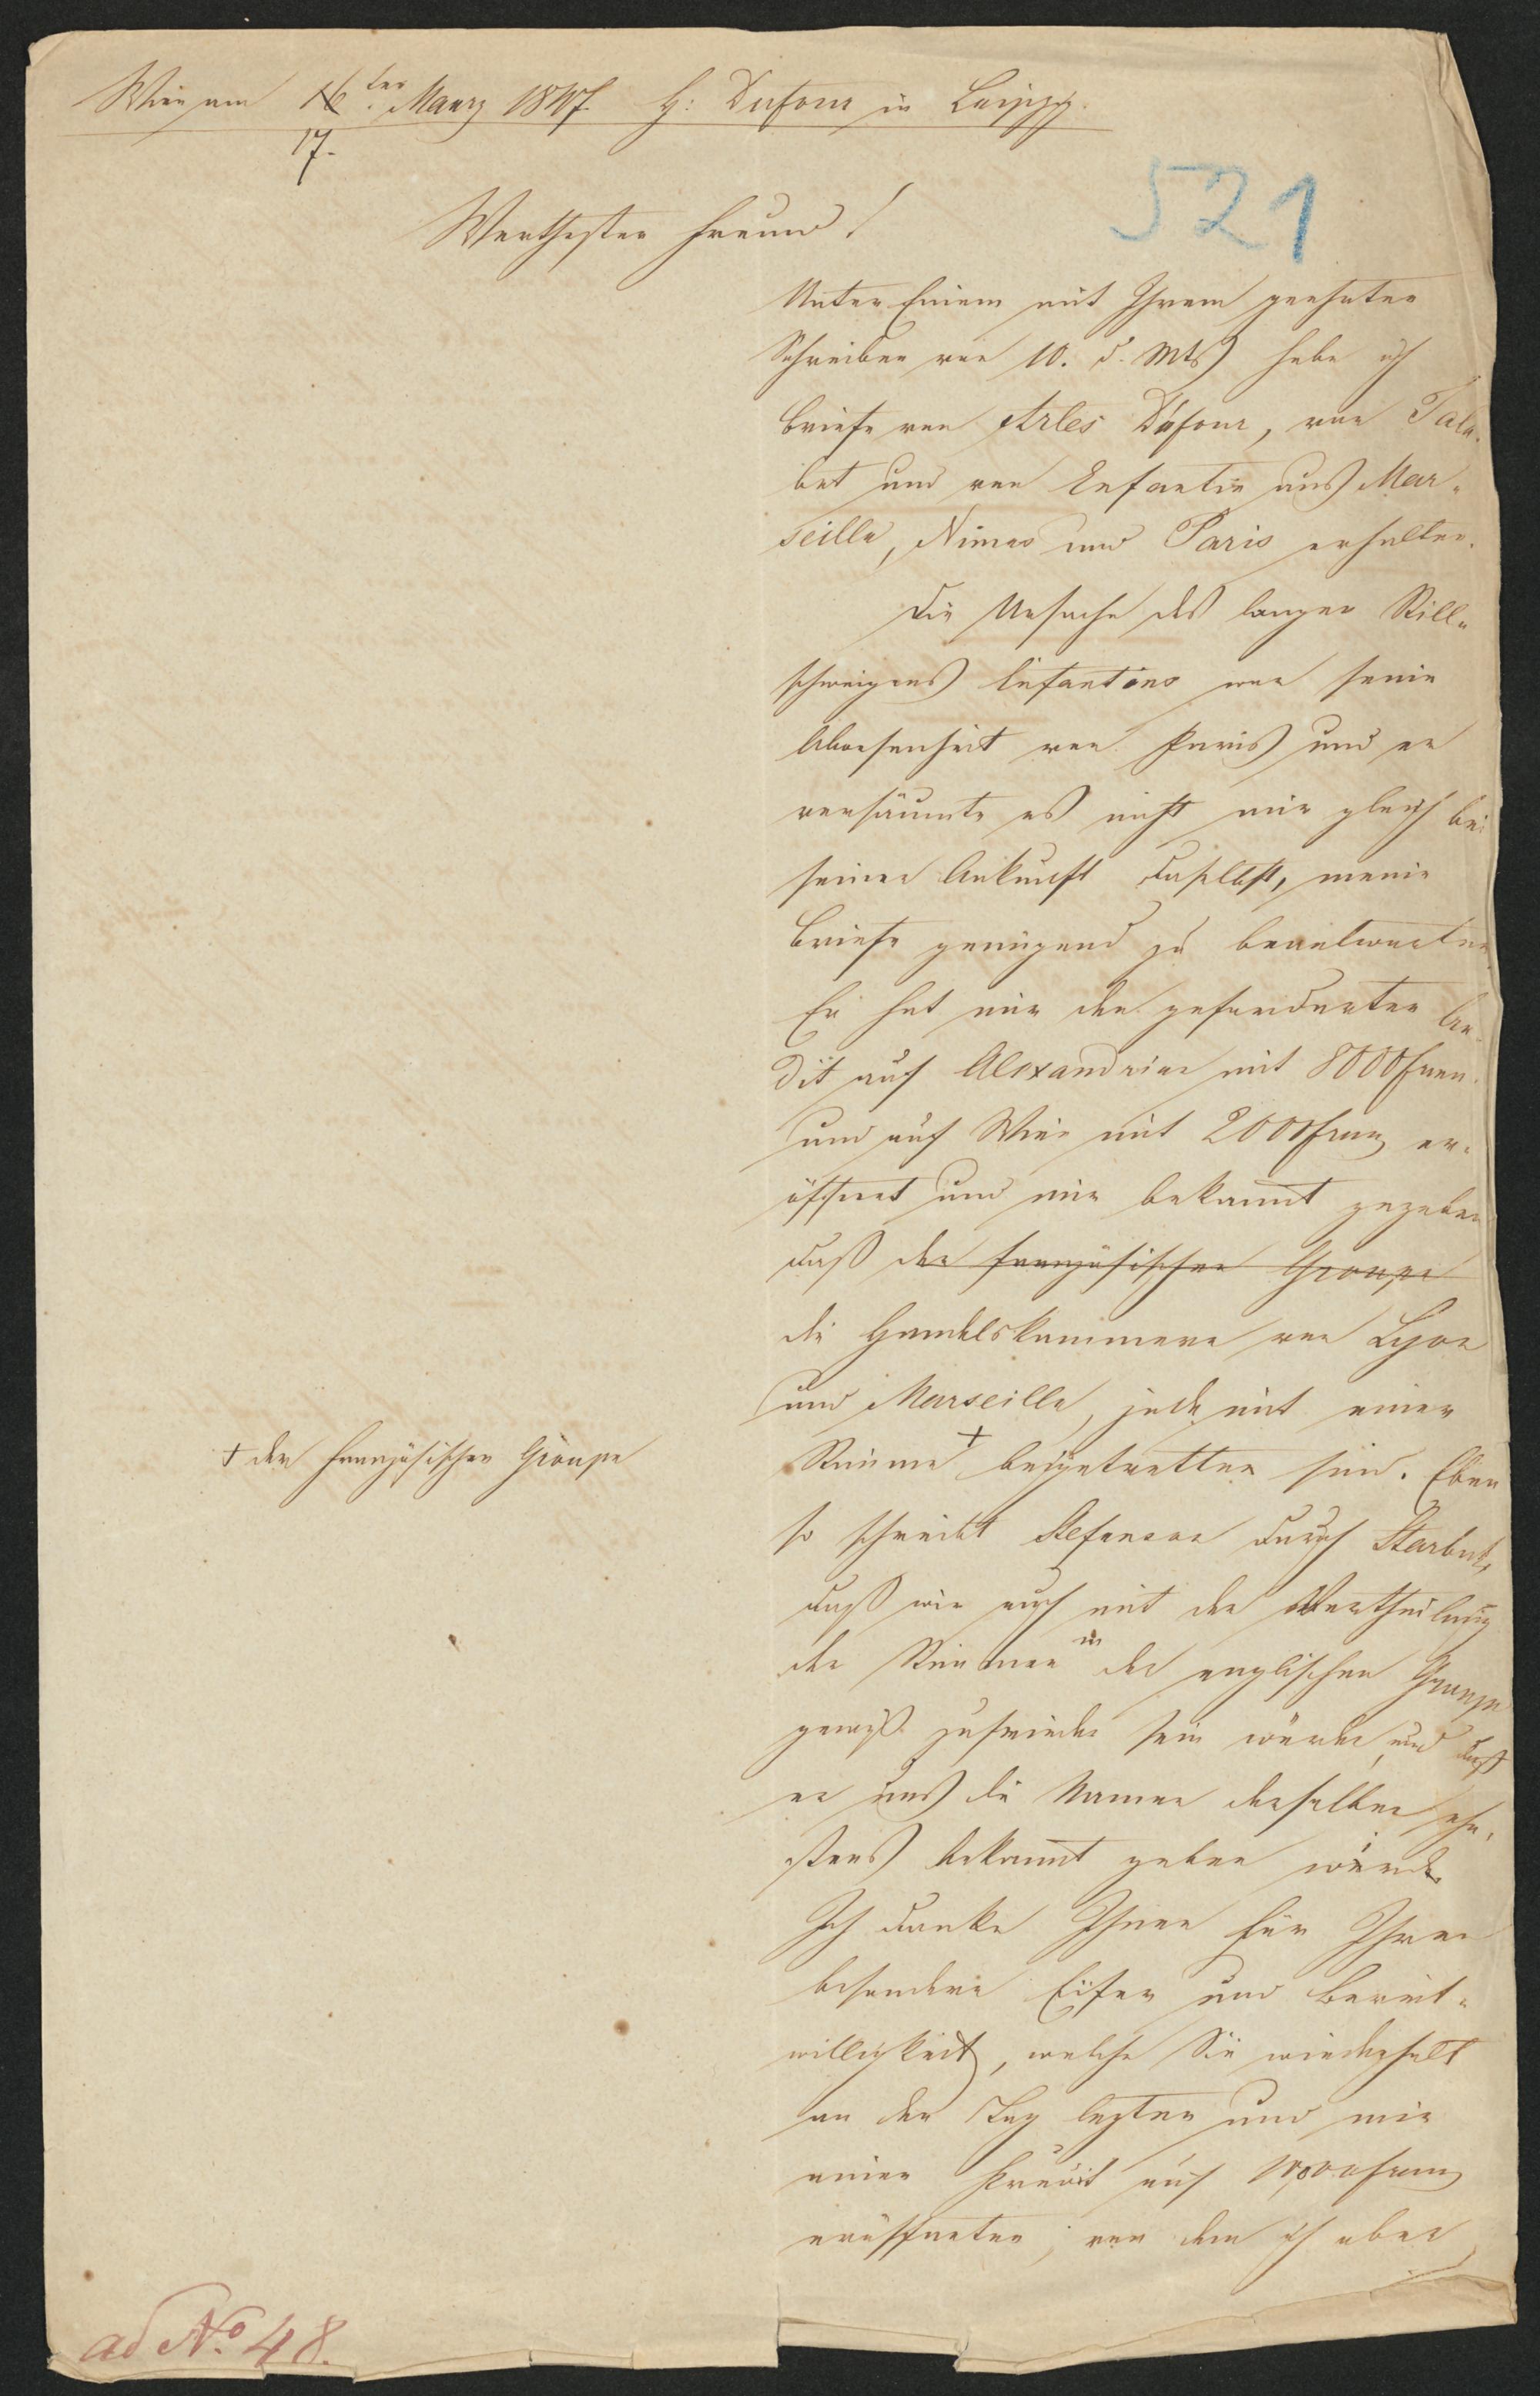 Wien am 16ten Maerz 1847. H: Dufour in Leipzig.
17.
521
Werthester Freund!
Unter Einem mit Ihrem geehrten
Schreiben von 10. d. Mts habe ich
Briefe von Arles Dufour, von Tala-
bot und von Enfantin aus Mar-
seille, Nimes und Paris erhalten.
Die Ursache des langen Still-
schweigens Enfantins war seine
Abwesenheit von Paris und er
versäumte es nicht mir gleich bei
seiner Ankunft daselbst, meine
Briefe genügend zu beantworten.
Er hat mir den geforderten Cre-
dit auf Alexandrien mit 8000 Fran
und auf Wien mit 2000 Franz er-
öffnet und mir bekannt gegeben
daß der französischen Groupe
die Handelskammern von Lyon
und Marseille, jede mit einer
Stimme + beigetretten sind. Eben
+ der französischen Groupe
so schreibt Stefenson durch Starbuk,
daß wir auch mit der Vertheilung
der Stimmen in der englischen Groupe
gewiß zufrieden sein würden, und daß
er uns die Namen derselben ehe-
stens bekannt geben würde.
Ich danke Ihnen für Ihren
besondern Eifer und Bereit-
willigkeit, welche Sie wiederholt
an den Tag legten und mir
einen Kredit auf 10,000 Franz
eröffneten; von dem ich aber
ad No. 48.